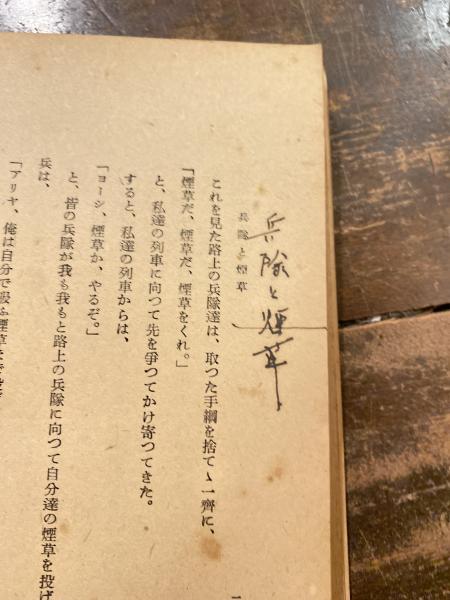 兵隊と煙草
兵隊と煙草
これを見た路上の兵隊達は、取つた手綱を捨てゝ一齊に、
「煙草だ、煙草だ、煙草をくれ。」
と、私達の列車に向つて先を爭つてかけ寄つてきた。
すると、私達の列車からは、
「ヨーシ、煙草か、やるぞ。」
と、皆の兵隊が我も我もと路上の兵隊に向つて自分達の煙草を投げ
兵は、
「アリヤ、俺は自分で吸ふ煙草まで